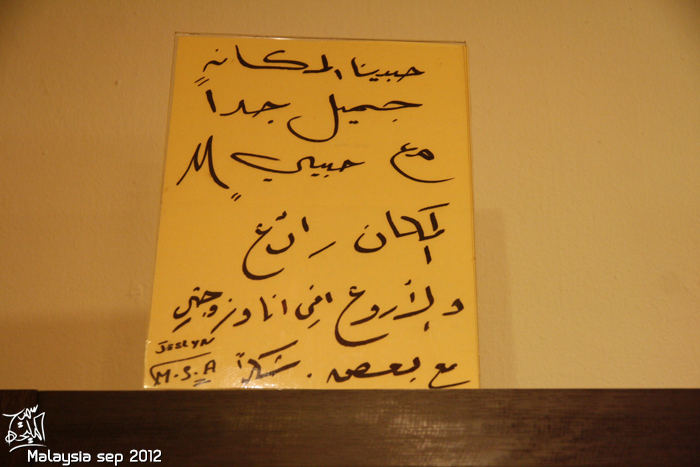 حبينا المكان
جميل جداً
مع حبيبي M
المكان رائع
والأروع اني انا وزوجتي
مع بعض . شكراً
JESLYN
M.S.A
Malaysia sep 2012